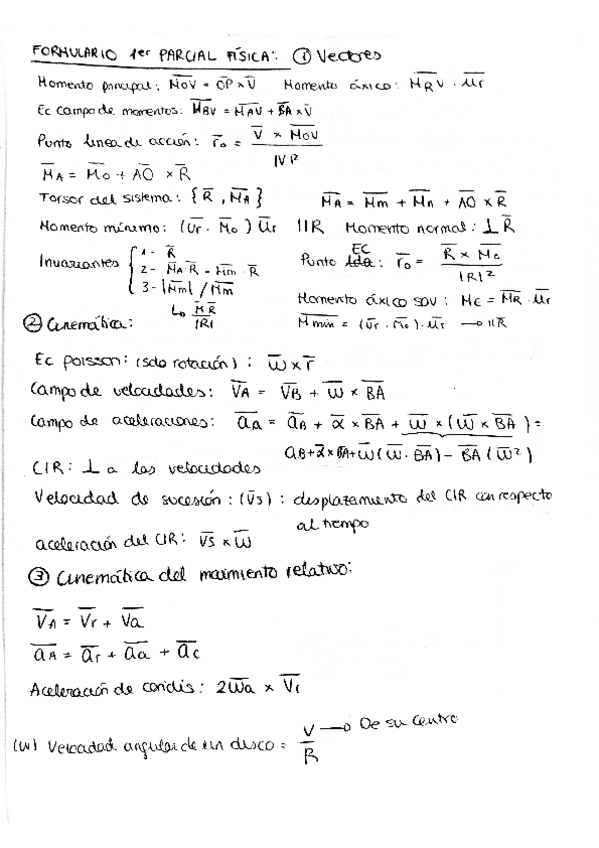 FORMULARIO 1er PARCIAL FÍSICA: ① Vectores
Momento principal: M̅o̅v̅ = O̅P̅ × V̅ Momento áxico: M̅R̅v̅ · u̅r̅
Ec Campo de momentos: M̅B̅v̅ = M̅A̅v̅ + B̅A̅ × V̅
Punto linea de acción: r̅o = V̅ × M̅o̅v̅ / |V|²
M̅A = M̅o + A̅O̅ × R̅
Torsor del sistema: { R̅ , M̅A } M̅A = M̅m + M̅n + A̅O̅ × R̅
Momento mínimo: (u̅r · M̅o) u̅r || R Momento normal: ⊥ R̅
Invariantes { 1- R̅
2- M̅A · R̅ = M̅m · R̅
3- |M̅m| / M̅m
↳ M̅ R̅ / |R|
Punto EC: r̅o = R̅ × M̅o / |R|²
Momento áxico SDV: Me = M̅R · u̅r
M̅min = (u̅r · M̅o) · u̅r → || R̅
② Cinemática:
Ec poisson: (solo rotación): w̅ × r̅
Campo de velocidades: V̅A = V̅B + w̅ × B̅A̅
Campo de aceleraciones: a̅A = a̅B + α̅ × B̅A̅ + w̅ × (w̅ × B̅A̅) =
aB + α̅ × B̅A̅ + w̅ (w̅ · B̅A̅) − B̅A̅ (w̅²)
CIR: ⊥ a las velocidades
Velocidad de sucesión: (v̅s): desplazamiento del CIR con respecto
al tiempo
aceleración del CIR: v̅s × w̅
③ Cinemática del movimiento relativo:
V̅A = V̅r + V̅a
a̅A = a̅r + a̅a + a̅c
Aceleración de coriolis: 2w̅a × V̅r
(w) Velocidad angular de un disco = V / R → De su centro